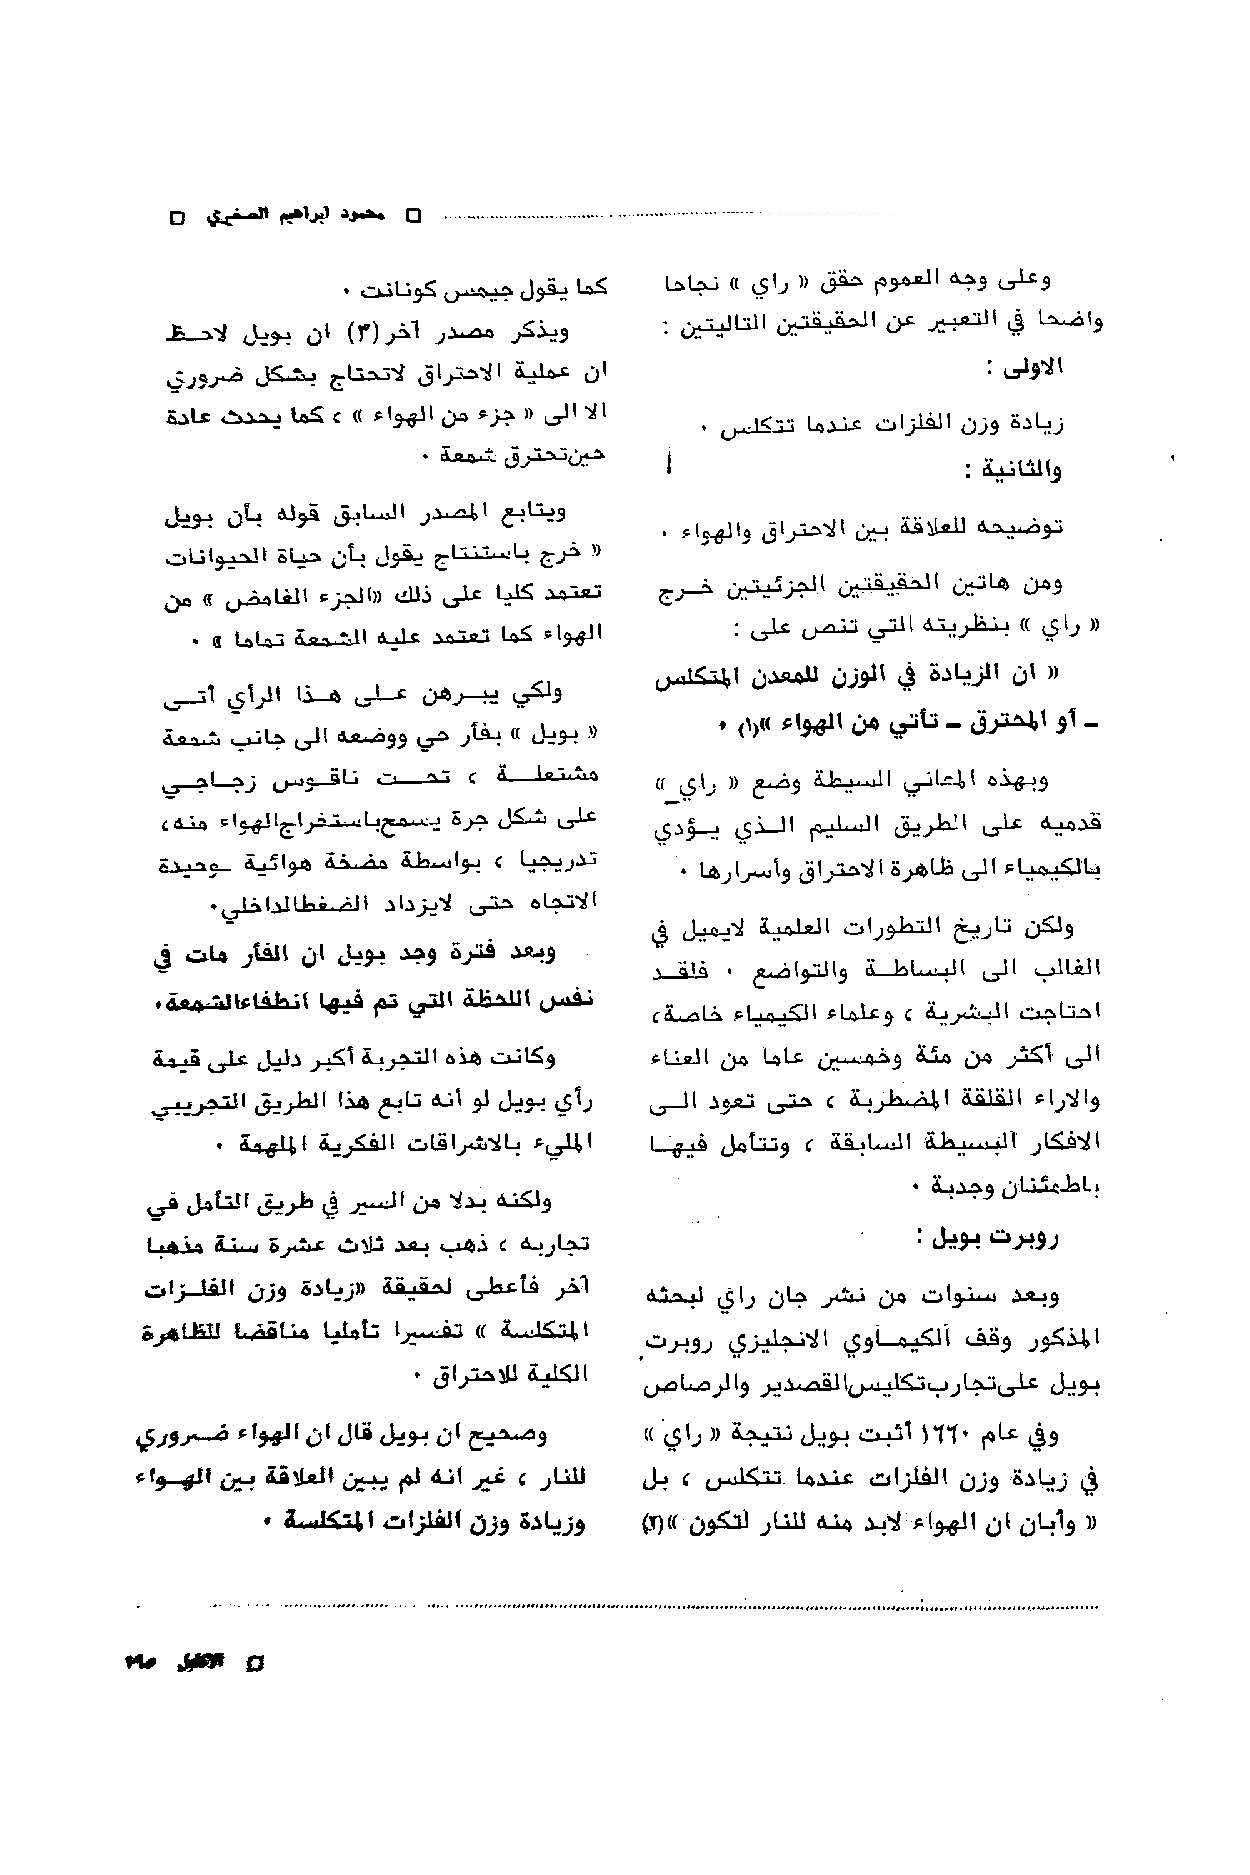 □ محمود ابراهيم الصغيري □
وعلى وجه العموم حقق « راي » نجاحا
واضحا في التعبير عن الحقيقتين التاليتين :
الاولى :
زيادة وزن الفلزات عندما تتكلس .
والثانية :
توضيحه للعلاقة بين الاحتراق والهواء .
ومن هاتين الحقيقتين الجزئيتين خـرج
« راي » بنظريته التي تنص على :
« ان الزيادة في الوزن للمعدن المتكلس
ـ أو المحترق ـ تأتي من الهواء »(١) .
وبهذه المعاني البسيطة وضع « راي »
قدميه على الطريق السليم الـذي يـؤدي
بالكيمياء الى ظاهرة الاحتراق وأسرارها .
ولكن تاريخ التطورات العلمية لايميل في
الغالب الى البسـاطـة والتواضع . فلقـد
احتاجت البشرية ، وعلماء الكيمياء خاصة،
الى أكثر من مئة وخمسين عاما من العناء
والاراء القلقة المضطربة ، حتى تعود الـى
الافكار البسيطة السابقة ، وتتأمل فيهـا
باطمئنان وجدية .
روبرت بويل :
وبعد سنوات من نشر جان راي لبحثه
المذكور وقف الكيمـاوي الانجليزي روبرت
بويل على تجارب تكليس القصدير والرصاص
وفي عام ١٦٦٠ أثبت بويل نتيجة « راي »
في زيادة وزن الفلزات عندما تتكلس ، بل
« وأبان ان الهواء لابد منه للنار لتكون »(٢)
كما يقول جيمس كونانت .
ويذكر مصدر آخر (٣) ان بويل لاحـظ
ان عملية الاحتراق لاتحتاج بشكل ضروري
الا الى « جزء من الهواء » ، كما يحدث عادة
حين تحترق شمعة .
ويتابع المصدر السابق قوله بأن بويل
« خرج باستنتاج يقول بأن حياة الحيوانات
تعتمد كليا على ذلك «الجزء الغامض » من
الهواء كما تعتمد عليه الشمعة تماما » .
ولكي يبـرهن عـلى هـذا الرأي أتـى
« بويل » بفأر حي ووضعه الى جانب شمعة
مشتعلـــة ، تحـــت ناقـوس زجـاجـي
على شكل جرة يسمح باستخراج الهواء منه،
تدريجيا ، بواسطة مضخة هوائية وحيدة
الاتجاه حتى لايزداد الضغط الداخلي.
وبعد فترة وجد بويل ان الفأر مات في
نفس اللحظة التي تم فيها انطفاء الشمعة.
وكانت هذه التجربة أكبر دليل على قيمة
رأي بويل لو أنه تابع هذا الطريق التجريبي
المليء بالاشراقات الفكرية الملهمة .
ولكنه بدلا من السير في طريق التأمل في
تجاربه ، ذهب بعد ثلاث عشرة سنة مذهبا
آخر فأعطى لحقيقة «زيادة وزن الفلـزات
المتكلسة » تفسيرا تأمليا مناقضا للظاهرة
الكلية للاحتراق .
وصحيح ان بويل قال ان الهواء ضـروري
للنار ، غير انه لم يبين العلاقة بين الهـواء
وزيادة وزن الفلزات المتكلسة .
□ الاكليل